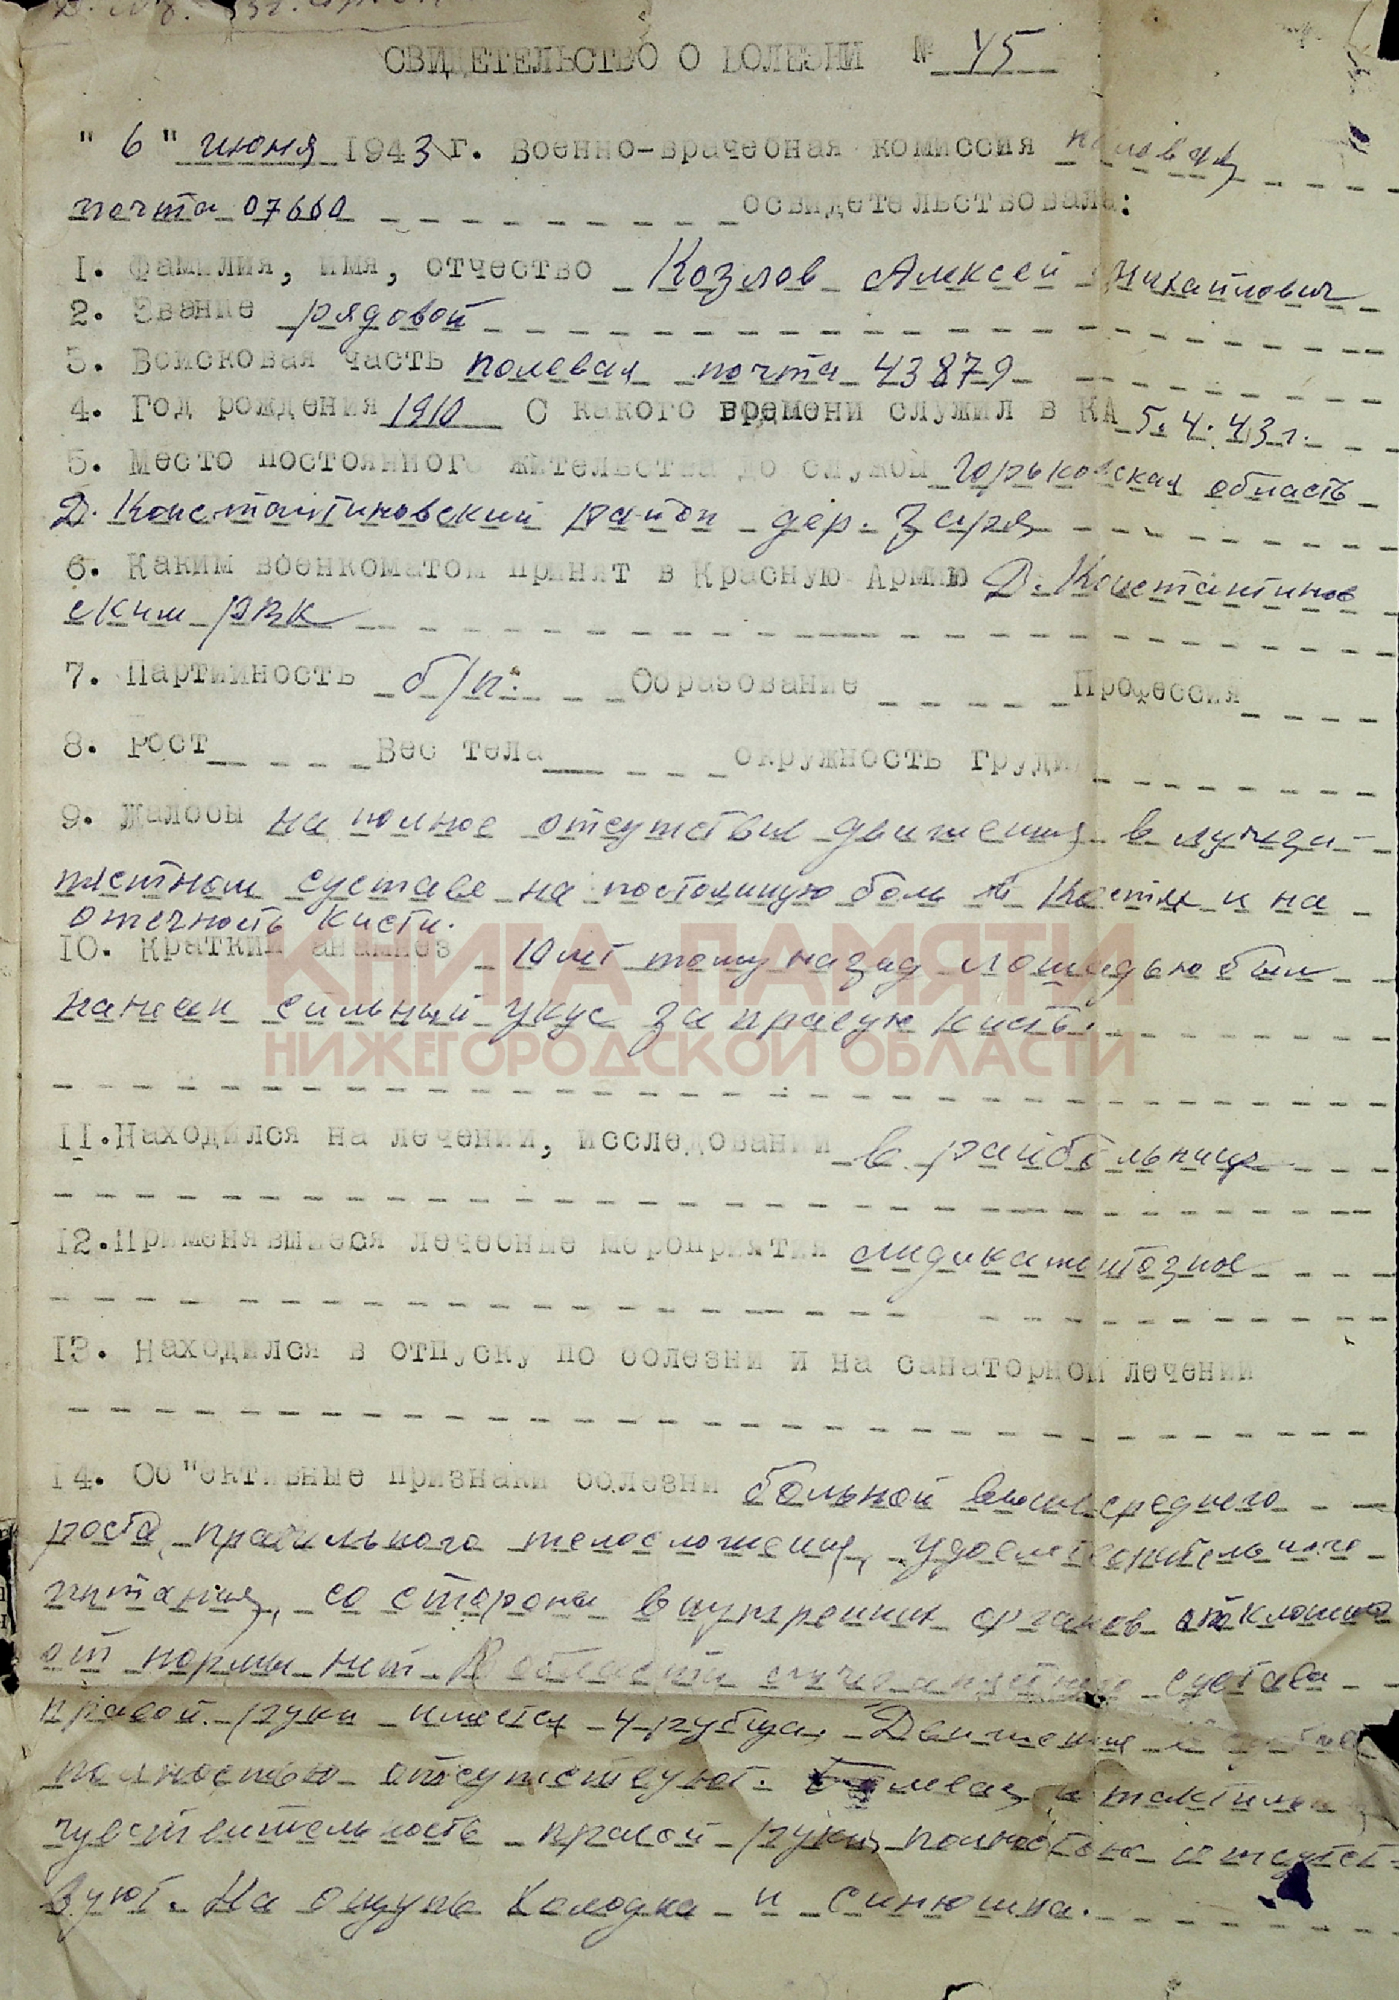 СВИДЕТЕЛЬСТВО О БОЛЕЗНИ № 45
" 6 " июня 1943 г. Военно-врачебная комиссия
почта 07660 освидетельствовала:
1. Фамилия, имя, отчество Козлов Алексей Михайлович
2. Звание рядовой
3. Воисковая часть полевая почта 43879
4. Год рождения 1910 С какого времени служил в КА 5.4.43 г.
5. Место постоянного жительства до службы Горьковская область
Д. Константиновский район дер. Заря
6. Каким военкоматом принят в Красную Армию Д. Константинов
ским РВК
7. Партийность б/п. Образование Профессия
8. Рост Вес тела окружность груди
9. Жалобы на полное отсутствие движения в лучеза-
пястном суставе на постоянную боль в кости и на
отечность кисти.
КНИГА ПАМЯТИ
10. Краткий анамнез 10 лет тому назад лошадью был
нанесен сильный укус за правую кисть.
НИЖЕГОРОДСКОЙ ОБЛАСТИ
11. Находился на лечении, исследовании в райбольнице
12. Применявшиеся лечебные мероприятия медикаментозное
13. Находился в отпуску по болезни и на санаторном лечении
14. Об"ективные признаки болезни больной выше среднего
роста, правильного телосложения, удовлетворительного
питания, со стороны внутренних органов отклонений
от нормы нет. В области лучезапястного сустава
правой руки имеется 4 рубца. Движения
полностью отсутствуют. Болевая и тактильная
чувствительность правой руки полностью отсутст-
вуют. На ощупь холодна и синюшна.